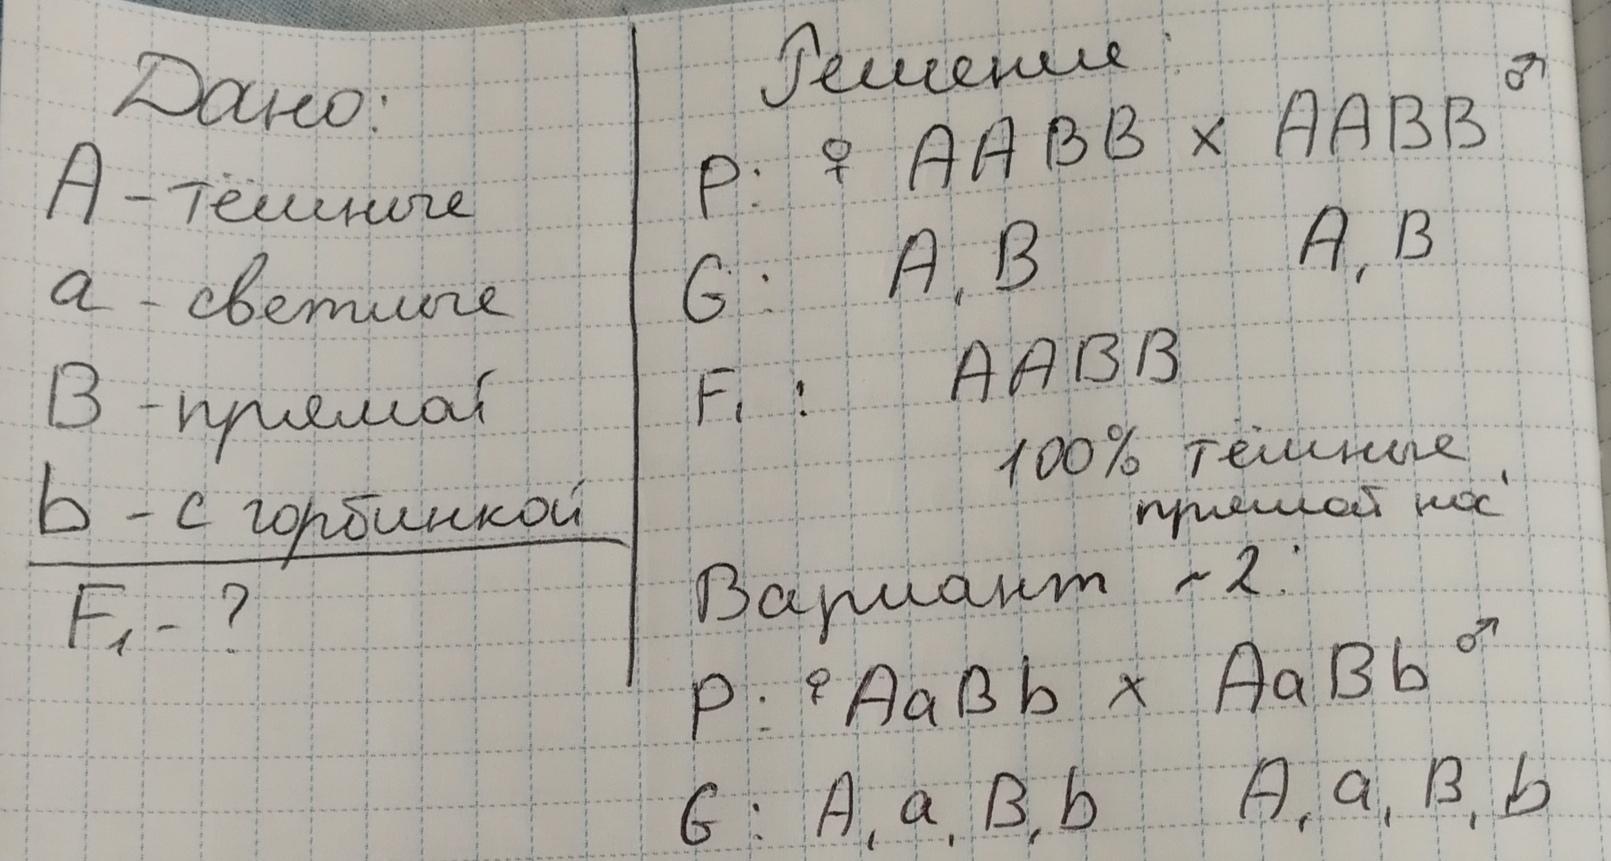 Дано:
A - тёмные
a - светлые
B - прямой
b - с горбинкой
F₁ - ?
Решение:
P: ♀ AABB x AABB ♂
G: A, B A, B
F₁: AABB
100% тёмные,
прямой нос
Вариант ~2:
P: ♀ AaBb x AaBb ♂
G: A, a, B, b A, a, B, b